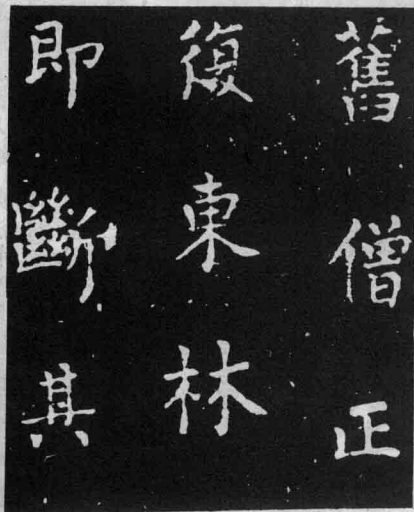 舊僧正
復東林
即斷其